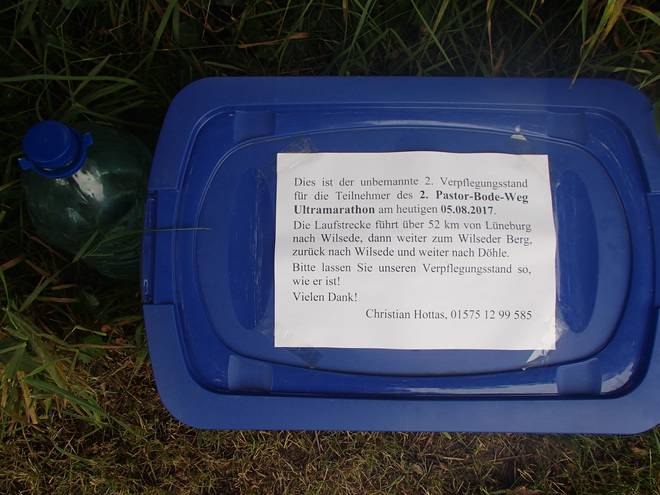 Dies ist der unbemannte 2. Verpflegungsstand
für die Teilnehmer des 2. Pastor-Bode-Weg
Ultramarathon am heutigen 05.08.2017.
Die Laufstrecke führt über 52 km von Lüneburg
nach Wilsede, dann weiter zum Wilseder Berg,
zurück nach Wilsede und weiter nach Döhle.
Bitte lassen Sie unseren Verpflegungsstand so,
wie er ist!
Vielen Dank!
Christian Hottas, 01575 12 99 585